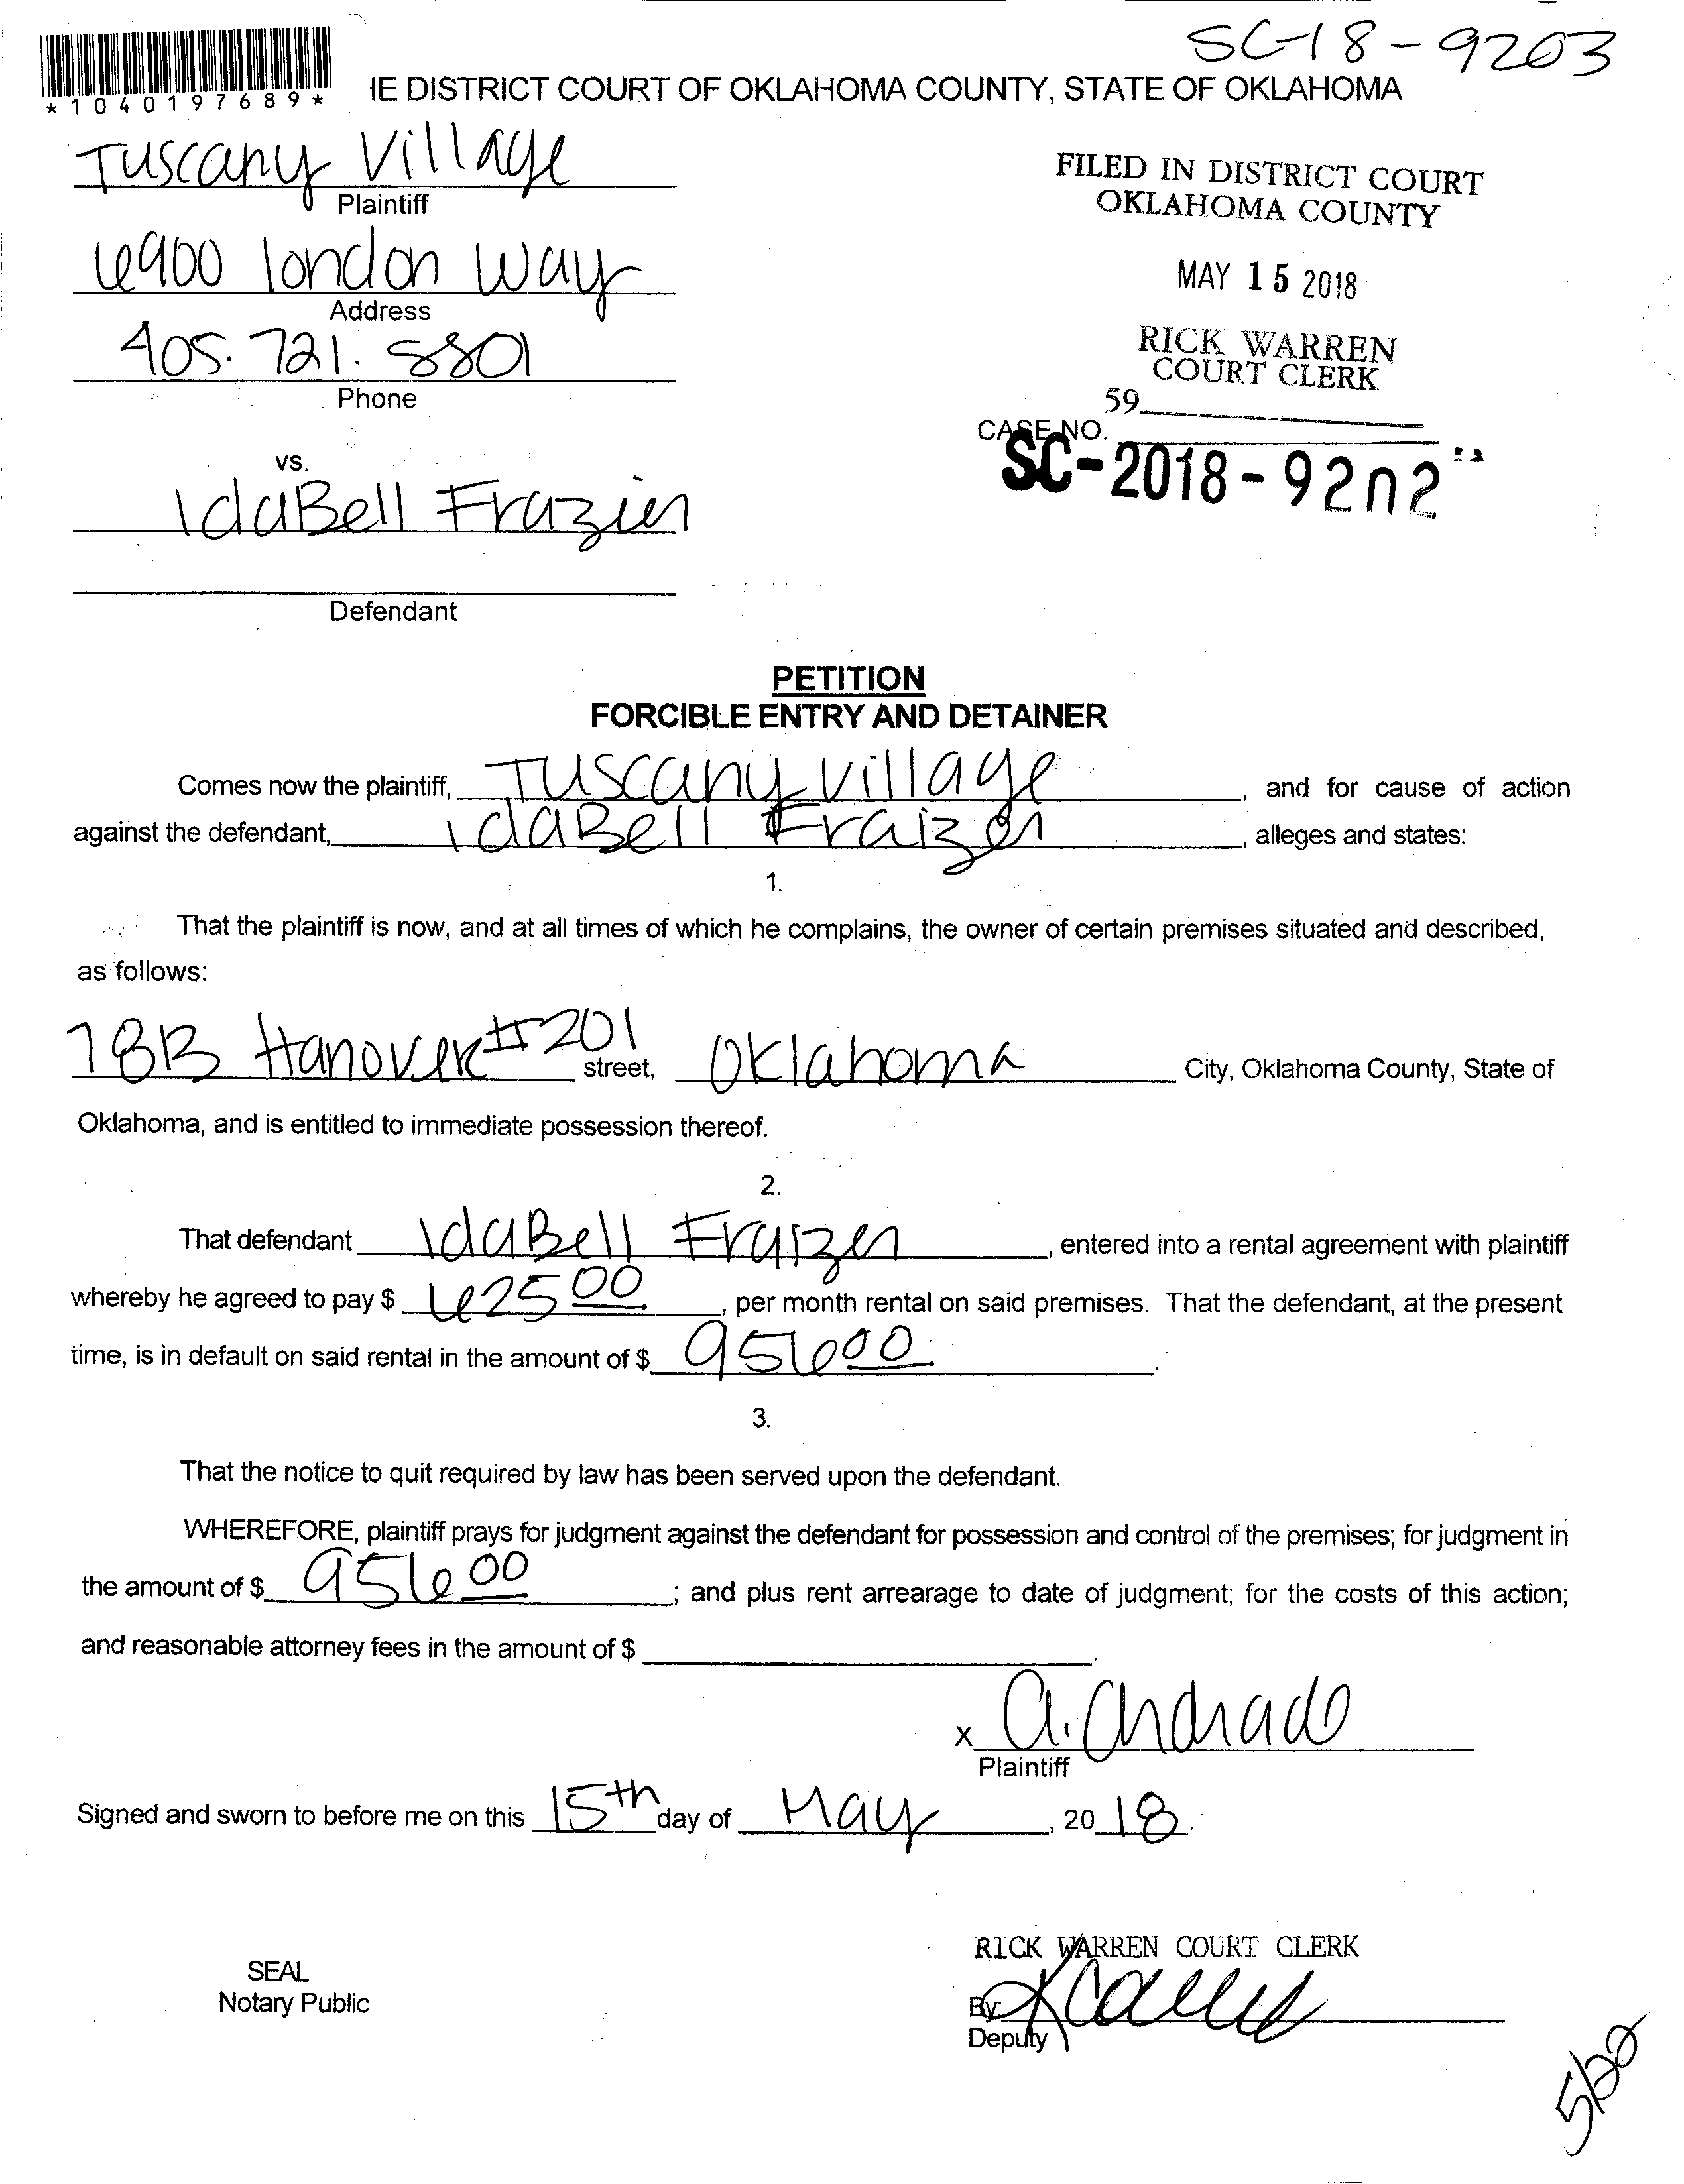 SC-18-9203
*1040197689*
IE DISTRICT COURT OF OKLAHOMA COUNTY, STATE OF OKLAHOMA
Tuscany Village
Plaintiff
6900 london Way
Address
405.721.5801
Phone
FILED IN DISTRICT COURT
OKLAHOMA COUNTY
MAY 15 2018
RICK WARREN
COURT CLERK
59
CASE NO.
SC-2018-9202
vs.
IdaBell Frazier
Defendant
PETITION
FORCIBLE ENTRY AND DETAINER
Comes now the plaintiff, Tuscany village, and for cause of action
against the defendant, IdaBell Fraizer, alleges and states:
1.
That the plaintiff is now, and at all times of which he complains, the owner of certain premises situated and described,
as follows:
7813 Hanover #201 street, Oklahoma City, Oklahoma County, State of
Oklahoma, and is entitled to immediate possession thereof.
2.
That defendant IdaBell Fraizer, entered into a rental agreement with plaintiff
whereby he agreed to pay $ 625 00, per month rental on said premises. That the defendant, at the present
time, is in default on said rental in the amount of $ 956 00.
3.
That the notice to quit required by law has been served upon the defendant.
WHEREFORE, plaintiff prays for judgment against the defendant for possession and control of the premises; for judgment in
the amount of $ 956 00; and plus rent arrearage to date of judgment; for the costs of this action;
and reasonable attorney fees in the amount of $ .
x a. Andrade
Plaintiff
Signed and sworn to before me on this 15th day of May, 2018.
SEAL
Notary Public
RICK WARREN COURT CLERK
By:
Deputy